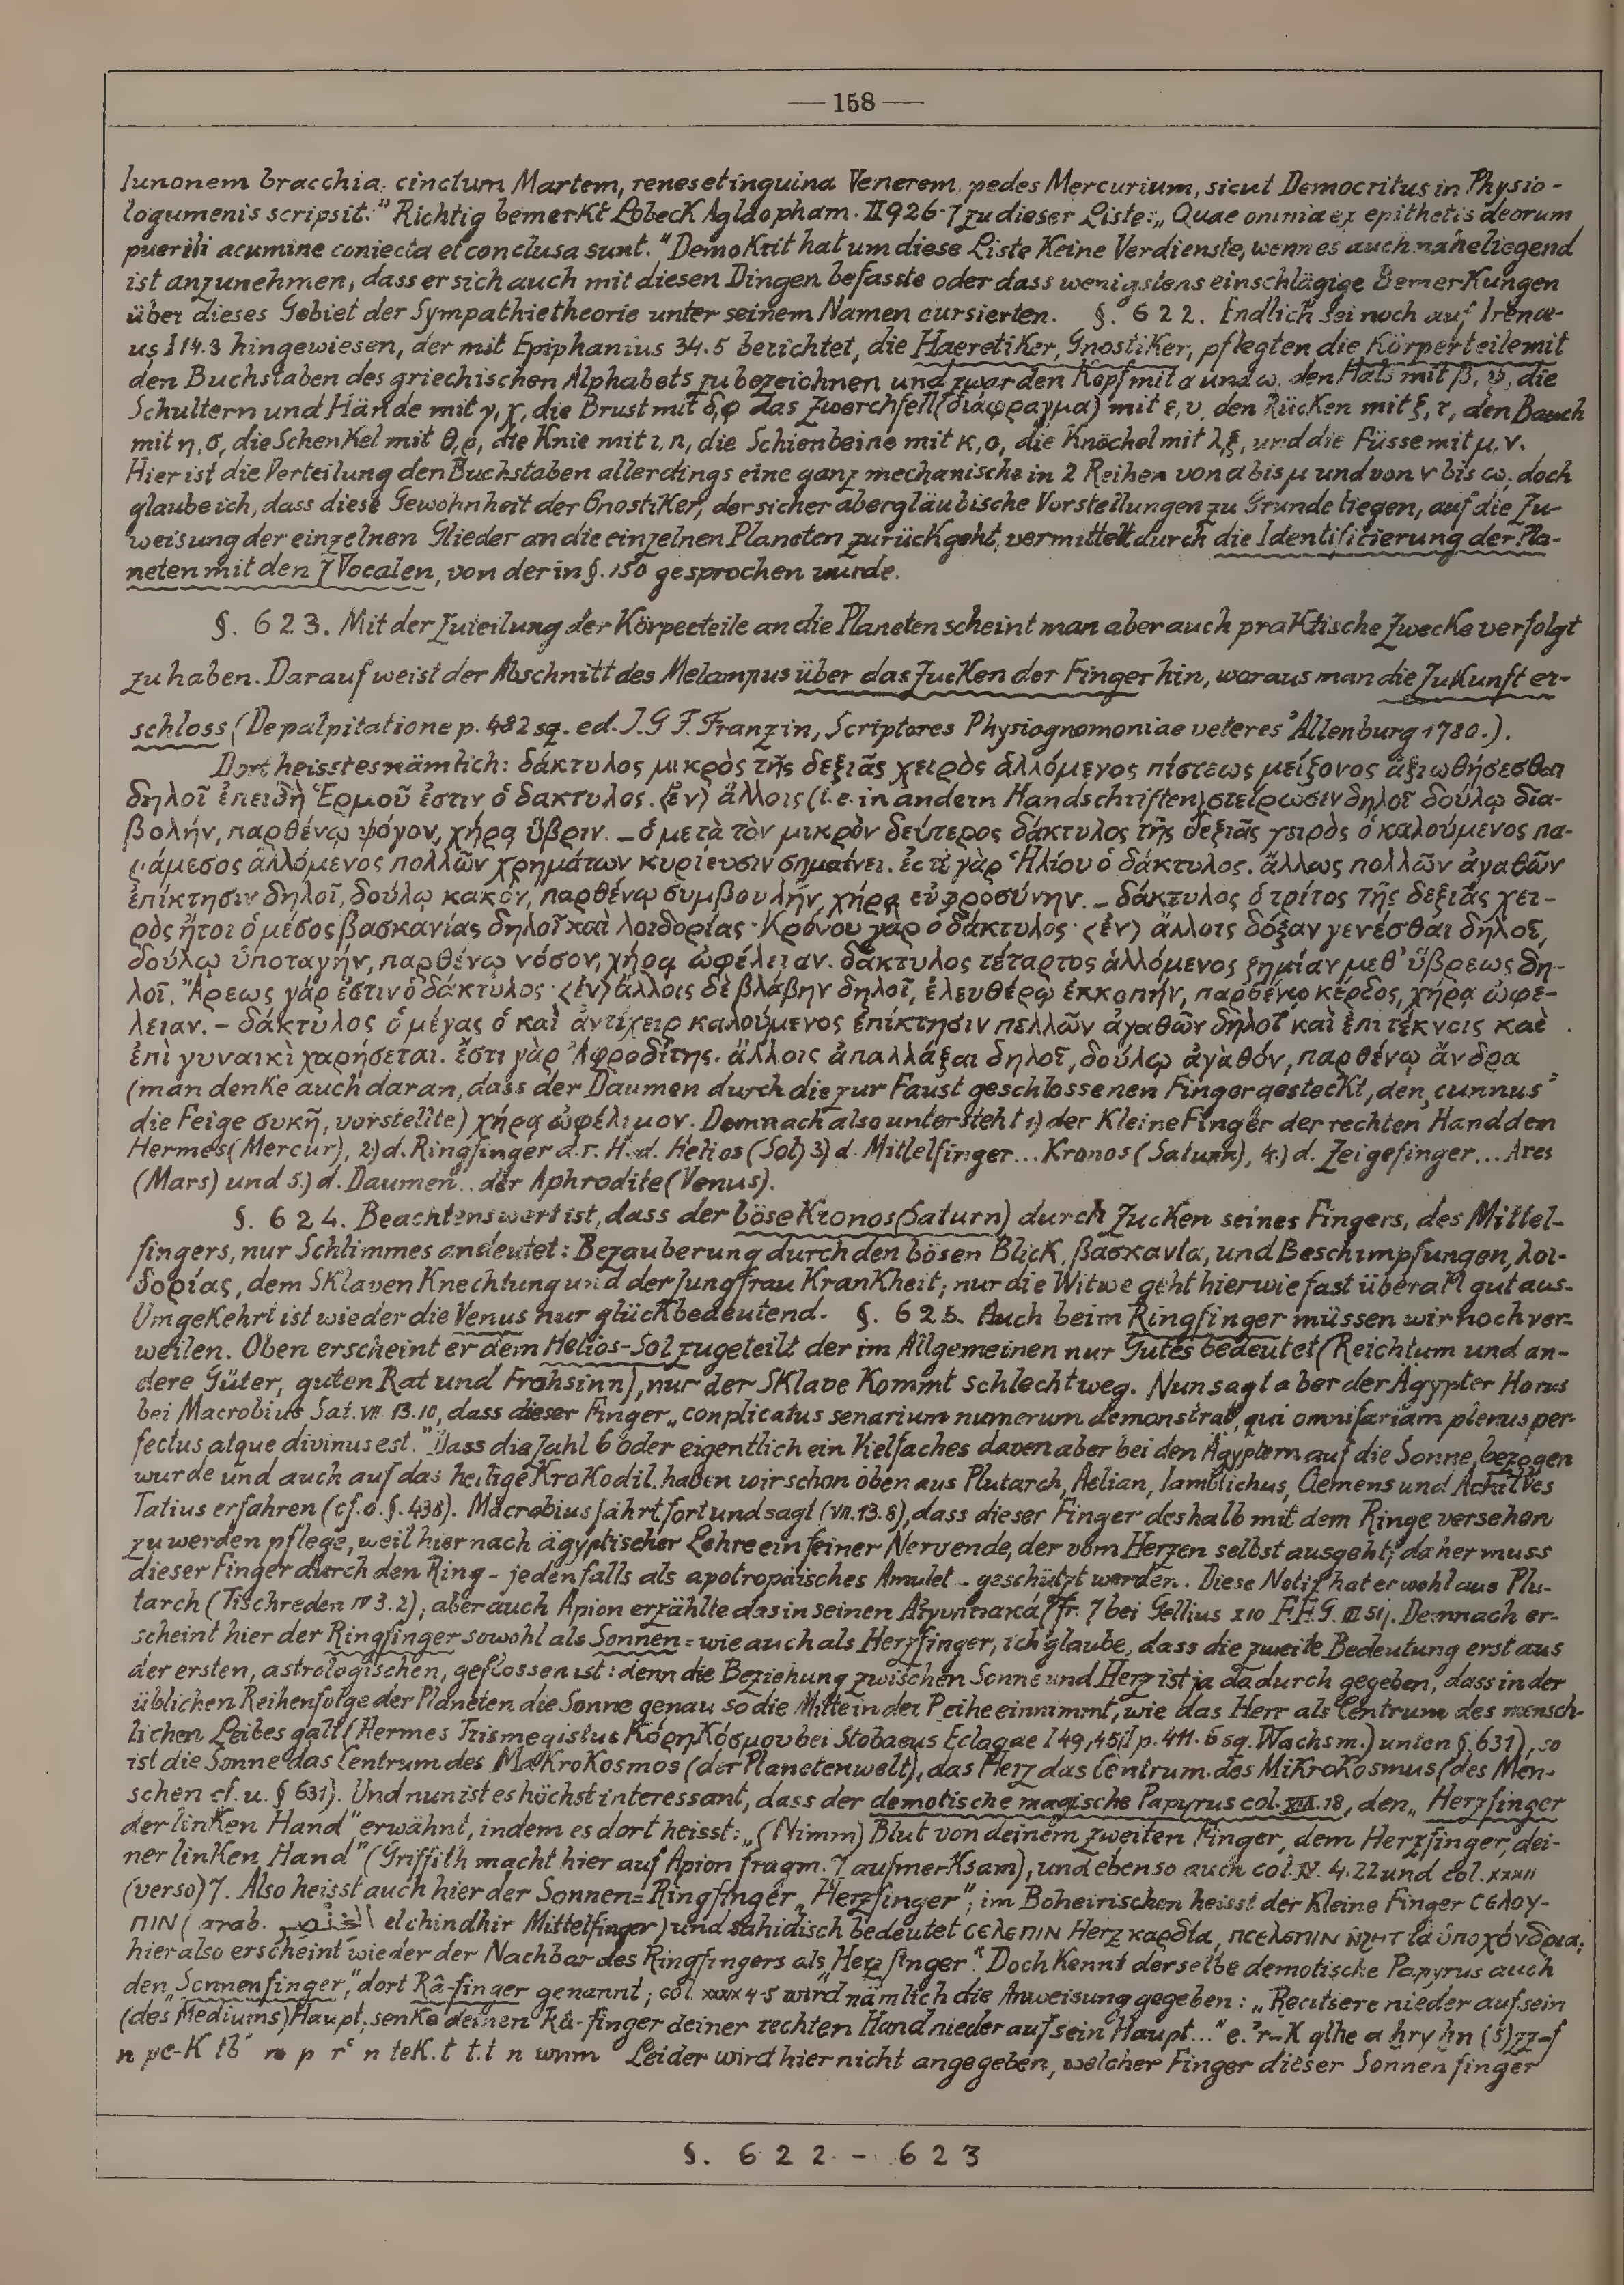 — 158 —
Iunonem bracchia, cinctum Martem, renes et inguina Venerem, pedes Mercurium, sicut Democritus in Physio-
logumenis scripsit." Richtig bemerkt Lobeck Aglaopham. II 926-7 zu dieser Liste: „Quae omnia ex epithetis deorum
puerili acumine coniecta et conclusa sunt." Demokrit hat um diese Liste keine Verdienste, wenn es auch naheliegend
ist anzunehmen, dass er sich auch mit diesen Dingen befasste oder dass wenigstens einschlägige Bemerkungen
über dieses Gebiet der Sympathietheorie unter seinem Namen cursierten. §. 622. Endlich sei noch auf Irenæ-
us I 14.3 hingewiesen, der mit Epiphanius 34.5 berichtet, die Haeretiker, Gnostiker, pflegten die Körperteile mit
den Buchstaben des griechischen Alphabets zu bezeichnen und zwar den Kopf mit α und ω, den Hals mit β, ψ, die
Schultern und Hände mit γ, χ, die Brust mit δ, φ das Zwerchfell (διάφραγμα) mit ε, υ, den Rücken mit ξ, τ, den Bauch
mit η, σ, die Schenkel mit θ, ρ, die Knie mit ι, π, die Schienbeine mit κ, ο, die Knöchel mit λ, ξ, und die Füsse mit μ, ν.
Hier ist die Verteilung den Buchstaben allerdings eine ganz mechanische in 2 Reihen von α bis μ und von ν bis ω, doch
glaube ich, dass diese Gewohnheit der Gnostiker, der sicher abergläubische Vorstellungen zu Grunde liegen, auf die Zu-
weisung der einzelnen Glieder an die einzelnen Planeten zurückgeht, vermittelt durch die Identificierung der Pla-
neten mit den 7 Vocalen, von der in §. 150 gesprochen wurde.
§. 623. Mit der Zuteilung der Körperteile an die Planeten scheint man aber auch praktische Zwecke verfolgt
zu haben. Darauf weist der Abschnitt des Melampus über das Zucken der Finger hin, woraus man die Zukunft er-
schloss (De palpitatione p. 482 sq. ed. J. G F. Franz in, Scriptores Physiognomoniae veteres' Altenburg 1780.).
Dort heisst es nämlich: δάκτυλος μικρὸς τῆς δεξιᾶς χειρὸς ἁλλόμενος πίστεως μείζονος ἀξιωθήσεσθαι
δηλοῖ ἐπειδὴ Ἑρμοῦ ἐστιν ὁ δακτυλος. 〈ἐν〉 ἄλλοις (i.e. in andern Handschriften) στείρωσιν δηλοῖ δούλῳ δια-
βολήν, παρθένῳ ψόγον, χήρᾳ ὕβριν. – ὁ μετὰ τὸν μικρὸν δεύτερος δάκτυλος τῆς δεξιᾶς χειρὸς ὁ καλούμενος πα-
ράμεσος ἁλλόμενος πολλῶν χρημάτων κυρίευσιν σημαίνει. ἐστὶ γὰρ Ἡλίου ὁ δάκτυλος. ἄλλως πολλῶν ἀγαθῶν
ἐπίκτησιν δηλοῖ, δούλῳ κακόν, παρθένῳ συμβουλήν, χήρᾳ εὐφροσύνην. – δάκτυλος ὁ τρίτος τῆς δεξιᾶς χει-
ρὸς ἤτοι ὁ μέσος βασκανίας δηλοῖ καὶ λοιδορίας· Κρόνου γὰρ ὁ δάκτυλος· 〈ἐν〉 ἄλλοις δόξαν γενέσθαι δηλοῖ,
δούλῳ ὑποταγήν, παρθένῳ νόσον, χήρᾳ ὠφέλειαν. δάκτυλος τέταρτος ἁλλόμενος ζημίαν μεθ' ὕβρεως δη-
λοῖ. Ἄρεως γάρ ἐστιν ὁ δάκτυλος· 〈ἐν〉 ἄλλοις δὲ βλάβην δηλοῖ, ἐλευθέρῳ ἐκκοπήν, παρθένῳ κέρδος, χήρᾳ ὠφέ-
λειαν. – δάκτυλος ὁ μέγας ὁ καὶ ἀντίχειρ καλούμενος ἐπίκτησιν πολλῶν ἀγαθῶν δηλοῖ καὶ ἐπὶ τέκνοις καὶ
ἐπὶ γυναικὶ χαρήσεται. ἔστι γὰρ Ἀφροδίτης. ἄλλοις ἀπαλλάξαι δηλοῖ, δούλῳ ἀγαθόν, παρθένῳ ἄνδρα
(man denke auch daran, dass der Daumen durch die zur Faust geschlossenen Finger gesteckt, den ‚cunnus'
die Feige συκῆ, vorstellte) χήρᾳ ὠφέλιμον. Demnach also untersteht 1) der Kleine Finger der rechten Hand dem
Hermes (Mercur), 2) d. Ringfinger d. r. H. d. Helios (Sol) 3) d. Mittelfinger... Kronos (Saturn), 4.) d. Zeigefinger... Ares
(Mars) und 5.) d. Daumen .. der Aphrodite (Venus).
§. 624. Beachtenswert ist, dass der böse Kronos (Saturn) durch Zucken seines Fingers, des Mittel-
fingers, nur Schlimmes andeutet: Bezauberung durch den bösen Blick, βασκανία, und Beschimpfungen, λοι-
δορίας, dem Sklaven Knechtung und der Jungfrau Krankheit; nur die Witwe geht hier wie fast überall gut aus.
Umgekehrt ist wieder die Venus nur glückbedeutend. §. 625. Auch beim Ringfinger müssen wir noch ver-
weilen. Oben erscheint er dem Helios-Sol zugeteilt der im Allgemeinen nur Gutes bedeutet (Reichtum und an-
dere Güter, guten Rat und Frohsinn), nur der Sklave kommt schlecht weg. Nun sagt aber der Ägypter Horus
bei Macrobius Sat. VII 13.10, dass dieser Finger „conplicatus senarium numerum demonstrat, qui omnifariam plenus per-
fectus atque divinus est." Dass die Zahl 6 oder eigentlich ein Vielfaches davon aber bei den Ägyptern auf die Sonne bezogen
wurde und auch auf das heilige Krokodil, haben wir schon oben aus Plutarch, Aelian, Iamblichus, Clemens und Achilles
Tatius erfahren (cf. o. §. 438). Macrobius fährt fort und sagt (VII. 13. 8), dass dieser Finger deshalb mit dem Ringe versehen
zu werden pflege, weil hier nach ägyptischer Lehre ein feiner Nerv ende, der vom Herzen selbst ausgeht; daher muss
dieser Finger durch den Ring – jedenfalls als apotropäisches Amulet – geschützt werden. Diese Notiz hat er wohl aus Plu-
tarch (Tischreden IV 3. 2); aber auch Apion erzählte das in seinen Αἰγυπτιακά (fr. 7 bei Gellius X 10 F.H.G. III 51). Demnach er-
scheint hier der Ringfinger sowohl als Sonnen= wie auch als Herzfinger, ich glaube, dass die zweite Bedeutung erst aus
der ersten, astrologischen, geflossen ist: denn die Beziehung zwischen Sonne und Herz ist ja dadurch gegeben, dass in der
üblichen Reihenfolge der Planeten die Sonne genau so die Mitte in der Reihe einnimmt, wie das Herr als Centrum des mensch-
lichen Leibes galt (Hermes Trismegistus Κόρη Κόσμου bei Stobaeus Eclagae I 49, 45 p. 411. 6 sq. Wachsm.) unten §. 631), so
ist die Sonne das Centrum des Makrokosmos (der Planetenwelt), das Herz das Centrum des Mikrokosmus (des Men-
schen cf. u. § 631). Und nun ist es höchst interessant, dass der demotische magische Papyrus col. 18, den „Herzfinger
der linken Hand" erwähnt, indem es dort heisst: „(Nimm) Blut von deinem zweiten Finger, dem Herzfinger, dei-
ner linken Hand" (Griffith macht hier auf Apion fragm. 7 aufmerksam), und ebenso auch col. IV. 4. 22 und col. XXXII
(verso) 7. Also heisst auch hier der Sonnen=Ringfinger „Herzfinger"; im Boheirischen heisst der Kleine Finger ⲥⲉⲗⲟⲩ-
ⲡⲓⲛ (arab. الخنصر elchindhir Mittelfinger) und sahidisch bedeutet ⲥⲉⲗⲉⲡⲓⲛ Herz καρδία, ⲡⲥⲉⲗⲉⲡⲓⲛ ⲛ̄ϩⲏⲧ τὰ ὑποχόνδρια;
hier also erscheint wieder der Nachbar des Ringfingers als „Herzfinger". Doch kennt derselbe demotische Papyrus auch
den „Sonnenfinger," dort Râ-finger genannt; col. 4-5 wird nämlich die Anweisung gegeben: „Recitiere nieder auf sein
(des Mediums) Haupt, senke deinen Râ-finger deiner rechten Hand nieder auf sein Haupt..." e.'r-K glhe a ẖry ẖn (s)zz-f
n pe-K tb' n p r' n teK. t t.t n wnm Leider wird hier nicht angegeben, welcher Finger dieser Sonnenfinger
§. 622 - 623